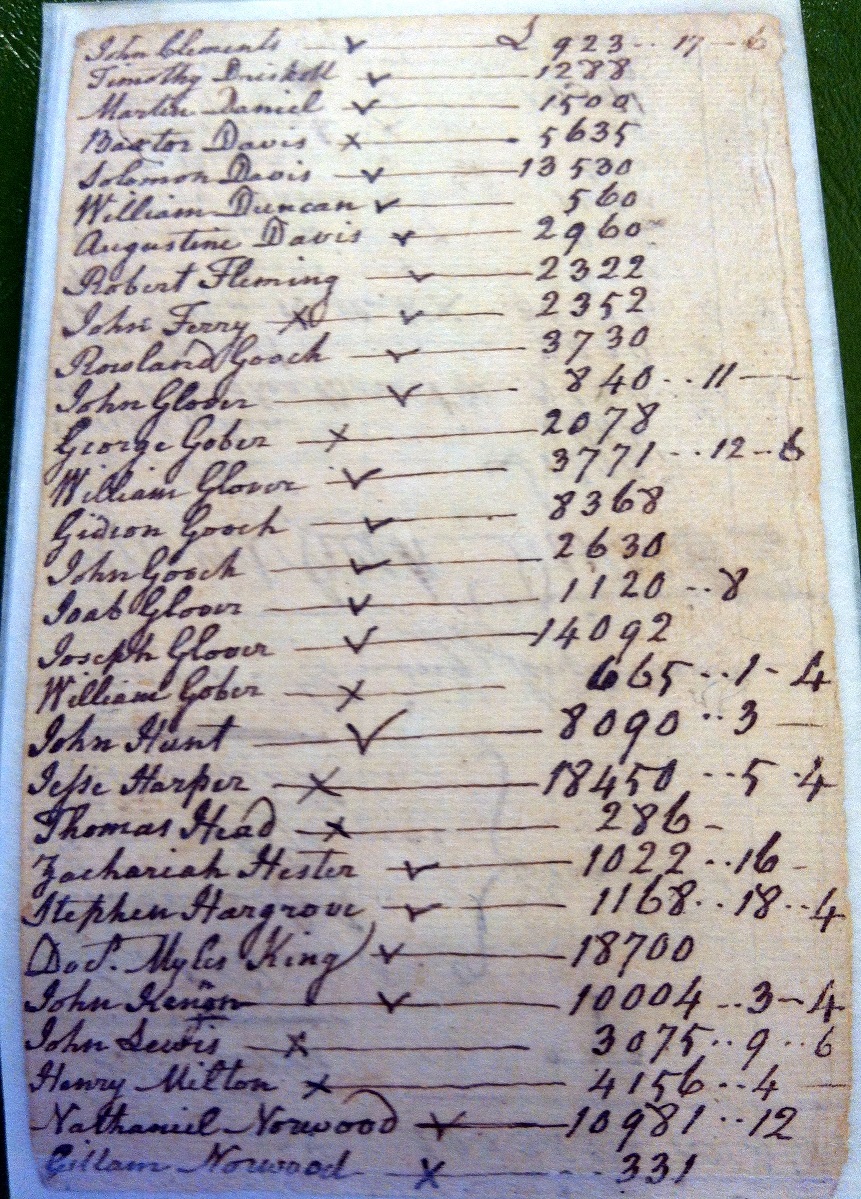 John Clements — ✓ — £ 923 .. 17 — 6
Timothy Driskoll ✓ — 1288
Martin Daniel ✓ — 1500
Baxtor Davis × — 5635
Solomon Davis ✓ — 13530
William Duncan ✓ — 560
Augustine Davis ✓ — 2960
Robert Fleming — ✓ — 2322
John Ferry × ✓ — 2352
Rowland Gooch — ✓ — 3730
John Glover — ✓ — 840 .. 11 —
George Gober — × — 2078
William Glover — ✓ — 3771 .. 12 - 6
Gideon Gooch — ✓ — 8368
John Gooch — ✓ — 2630
Joab Glover — ✓ — 1120 .. 8
Joseph Glover — ✓ — 14092
William Gober — × — 665 .. 1 - 4
John Hunt — ✓ — 8090 .. 3 —
Jesse Harper — × — 18450 .. 5 .. 4
Thomas Head — × — 286 -
Zachariah Hester — ✓ — 1022 .. 16 -
Stephen Hargrove — ✓ — 1168 .. 18 .. 4
Doct. Myles King ✓ — 18700
John Kenon — ✓ — 10004 .. 3 - 4
John Lewis — × — 3075 .. 9 .. 6
Henry Milton — × — 4156 .. 4 —
Nathaniel Norwood — ✓ — 10981 .. 12
Gillam Norwood — × — 331